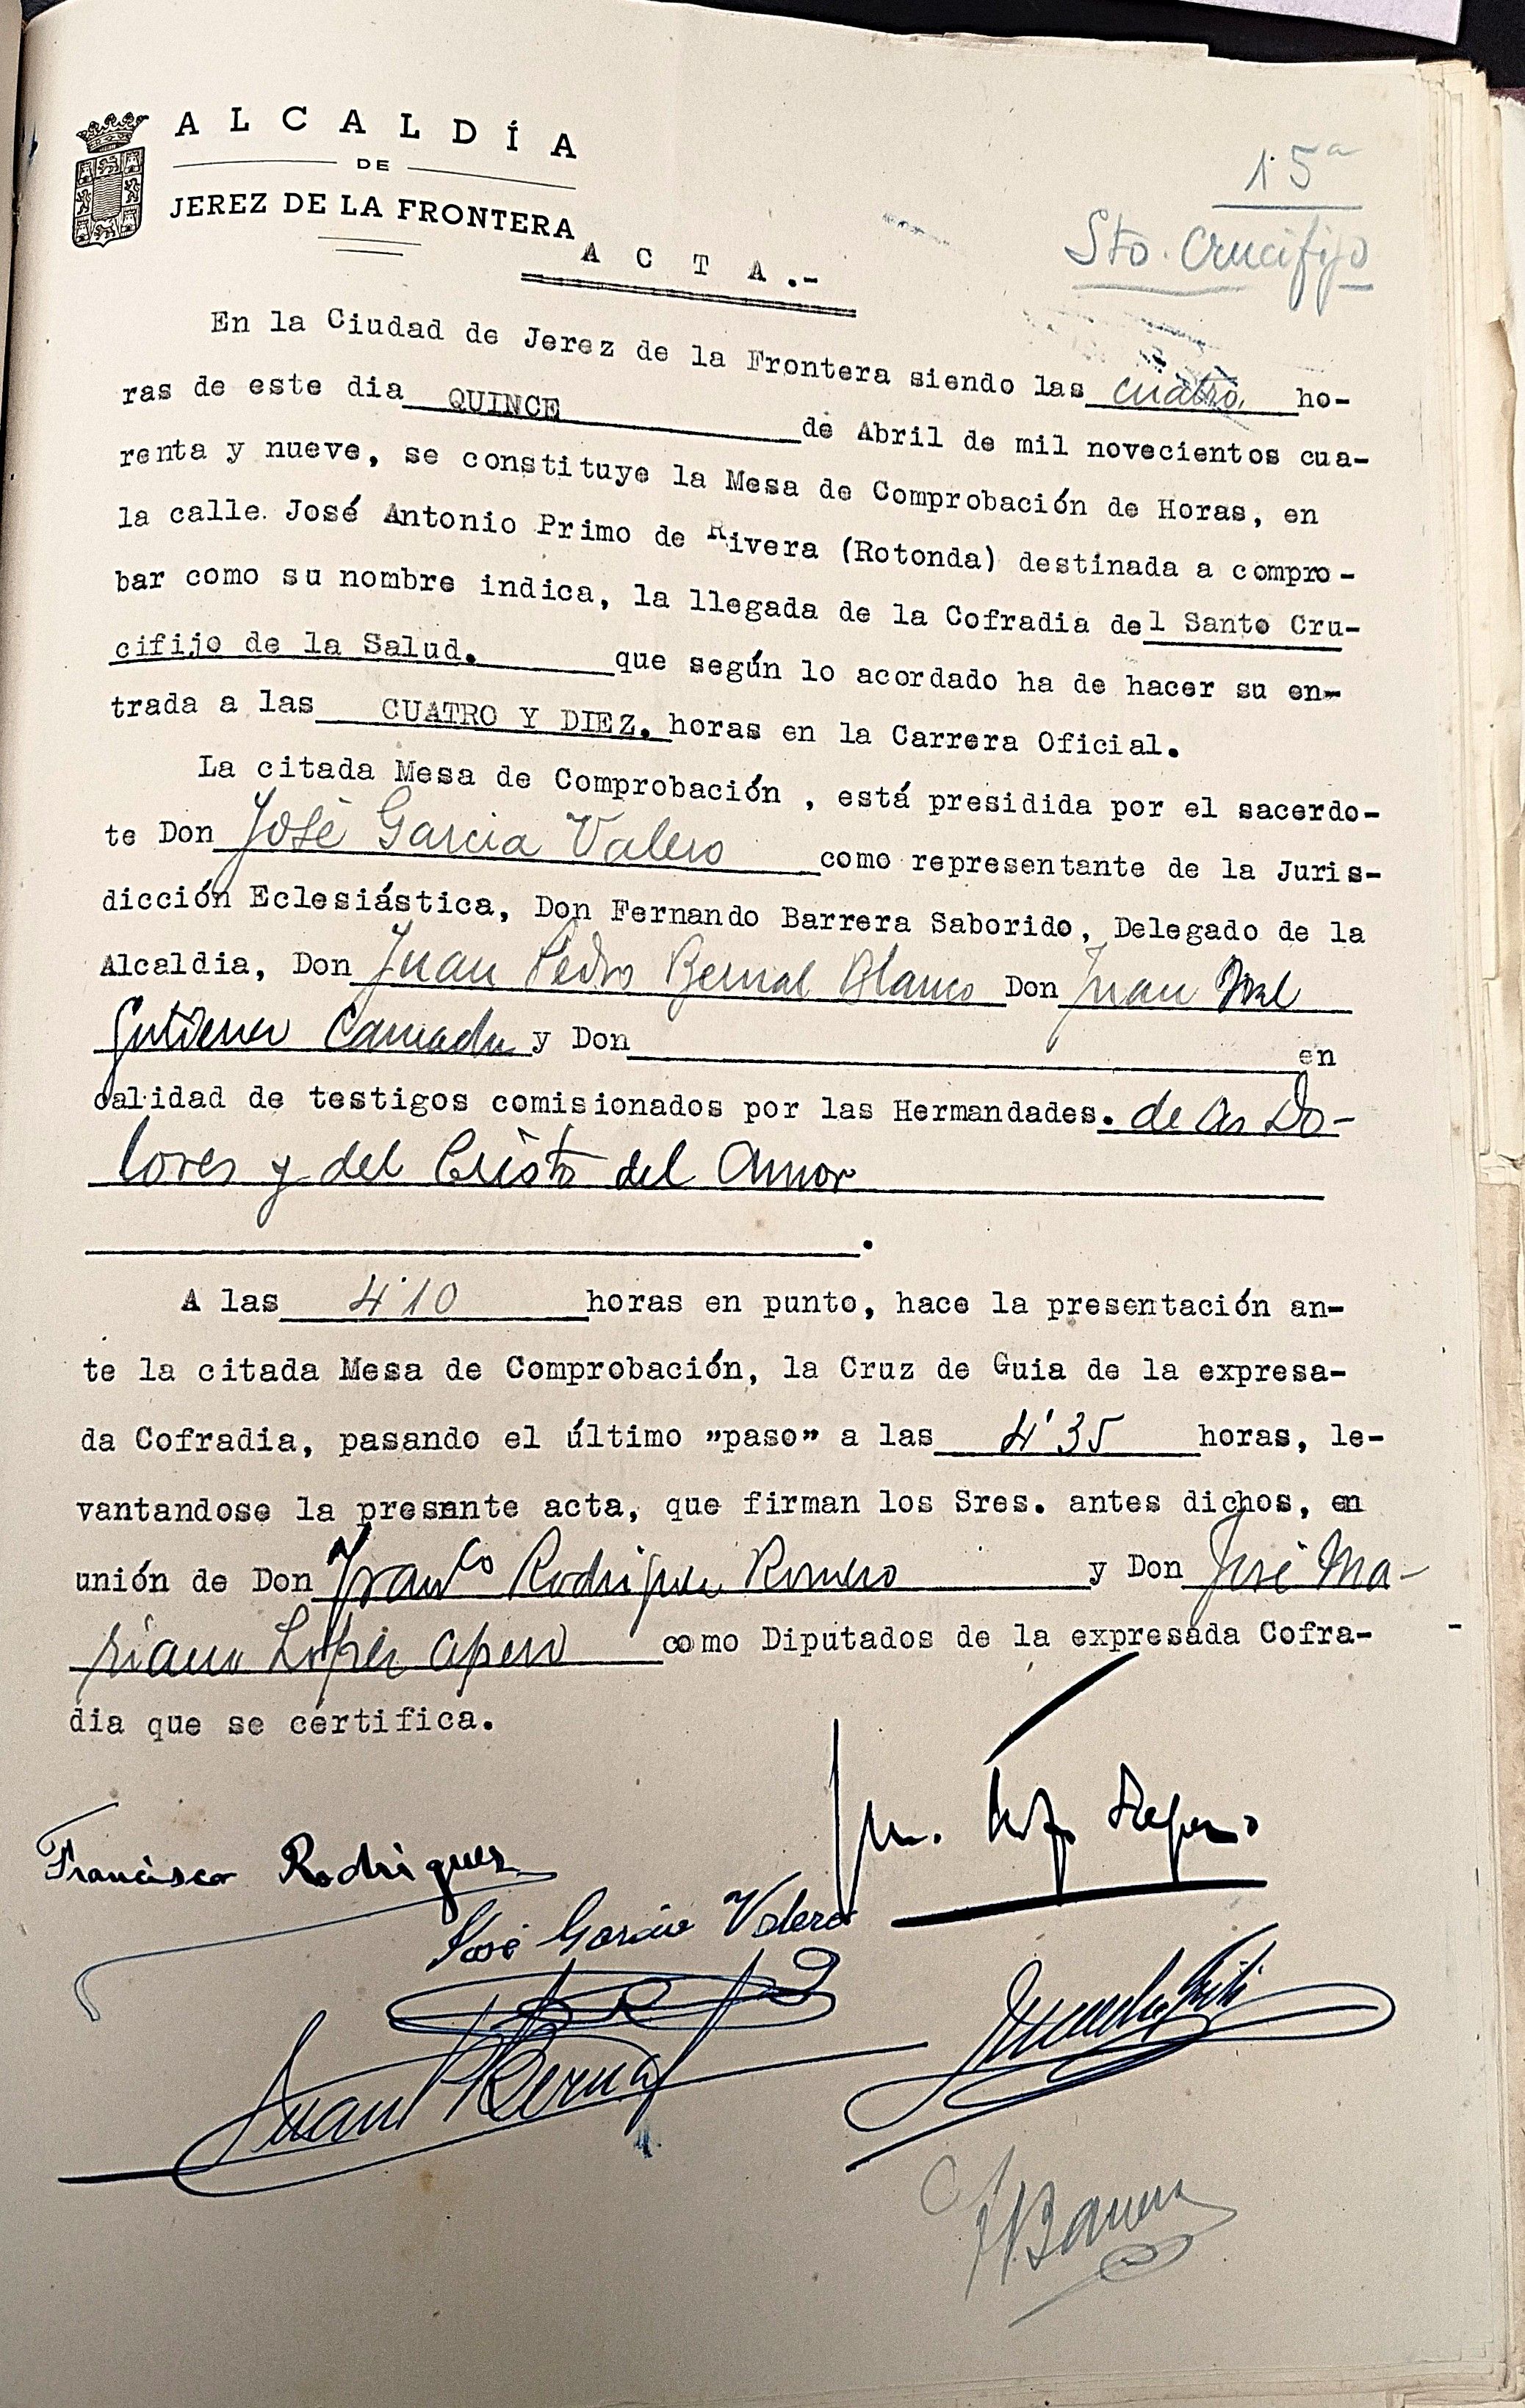 ALCALDÍA
DE
JEREZ DE LA FRONTERA
15ª
Sto. Crucifijo
A C T A .-
En la Ciudad de Jerez de la Frontera siendo las cuatro ho-
ras de este dia QUINCE de Abril de mil novecientos cua-
renta y nueve, se constituye la Mesa de Comprobación de Horas, en
la calle. José Antonio Primo de Rivera (Rotonda) destinada a compro-
bar como su nombre indica, la llegada de la Cofradia del Santo Cru-
cifijo de la Salud. que según lo acordado ha de hacer su en-
trada a las CUATRO Y DIEZ. horas en la Carrera Oficial.
La citada Mesa de Comprobación , está presidida por el sacerdo-
te Don José Garcia Valero como representante de la Juris-
dicción Eclesiástica, Don Fernando Barrera Saborido, Delegado de la
Alcaldia, Don Juan Pedro Bernal Blanco Don Juan
Gutierrez y Don en
calidad de testigos comisionados por las Hermandades. de los Do-
lores y del Cristo del Amor
.
A las 4'10 horas en punto, hace la presentación an-
te la citada Mesa de Comprobación, la Cruz de Guia de la expresa-
da Cofradia, pasando el último "paso" a las 4'35 horas, le-
vantandose la presente acta, que firman los Sres. antes dichos, en
unión de Don Franco Rodriguez Romero y Don José Ma-
riano López como Diputados de la expresada Cofra-
dia que se certifica.
Francisco Rodriguez
José García Valero
Juan P Bernal
Barrera